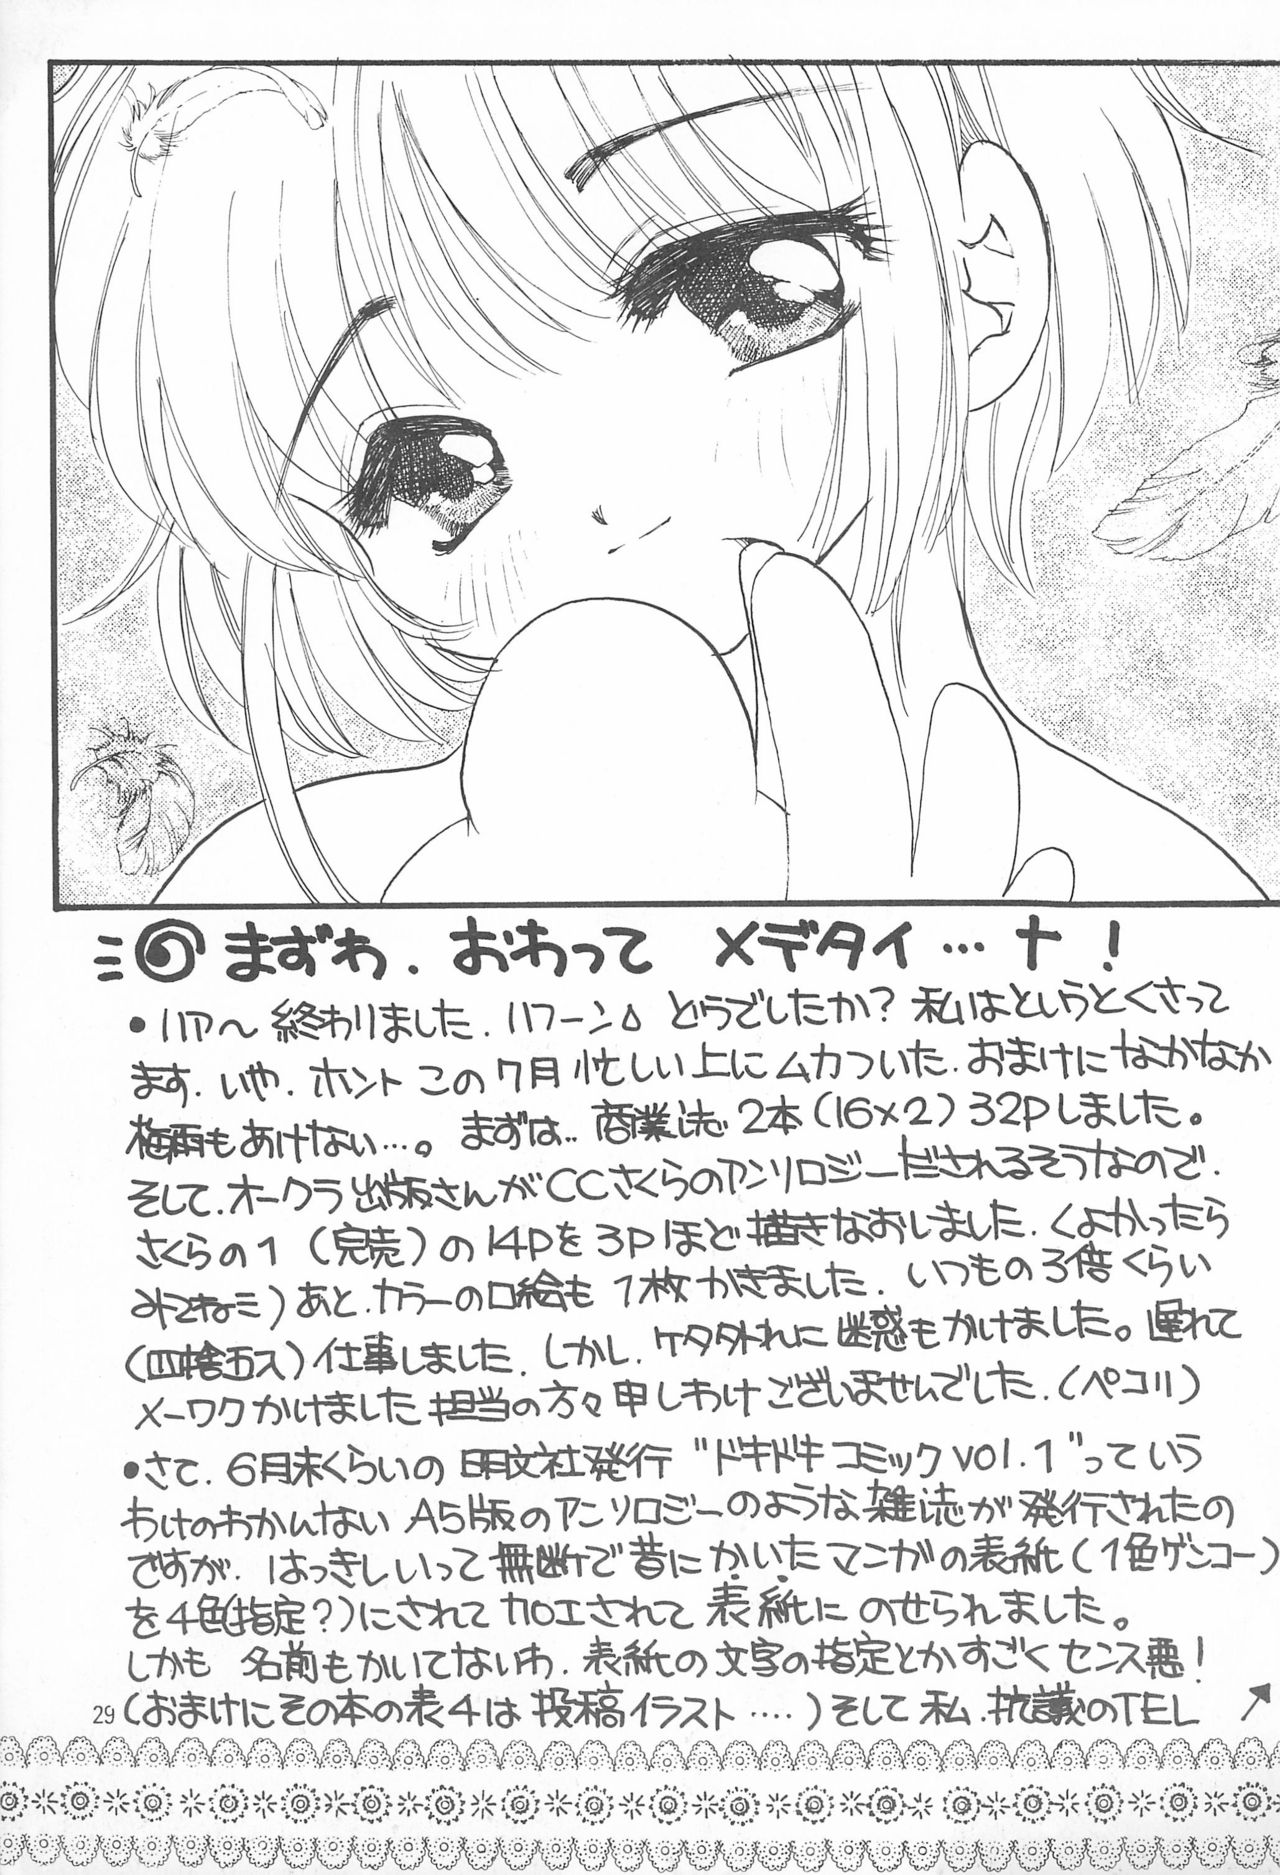 まずわ.おわって メデタイ…ナ!
・ハア〜終わりました.ハフーン どうでしたか?私はというとくさって
ます.いや.ホント この7月忙しい上にムカついた.おまけになかなか
梅雨もあけない…。まずは..商業誌2本(16×2)32Pしました。
そして.オークラ出版さんがCCさくらのアンソロジーだされるそうなので.
さくらの1(完売)の14Pを3Pほど描きなおしました.(よかったら
みてねミ)あと.カラーの口絵も 1枚かきました.いつもの3倍くらい
(四捨五入)仕事しました.しかし.ケタ外れに迷惑もかけました。遅れて
メーワクかけました担当の方々申しわけございませんでした.(ペコリ)
・さて.6月末くらいの 明文社発行"ドキドキコミックvol.1"っていう
わけのわかんない A5版のアンソロジーのような雑誌が発行されたの
ですが.はっきしいって無断で昔にかいたマンガの表紙(1色ゲンコー)
を4色(指定?)にされて加工されて表紙にのせられました。
しかも 名前もかいてないわ.表紙の文字の指定とかすごくセンス悪!
(おまけにその本の表4は投稿イラスト‥‥)そして私.抗議のTEL ↗
29